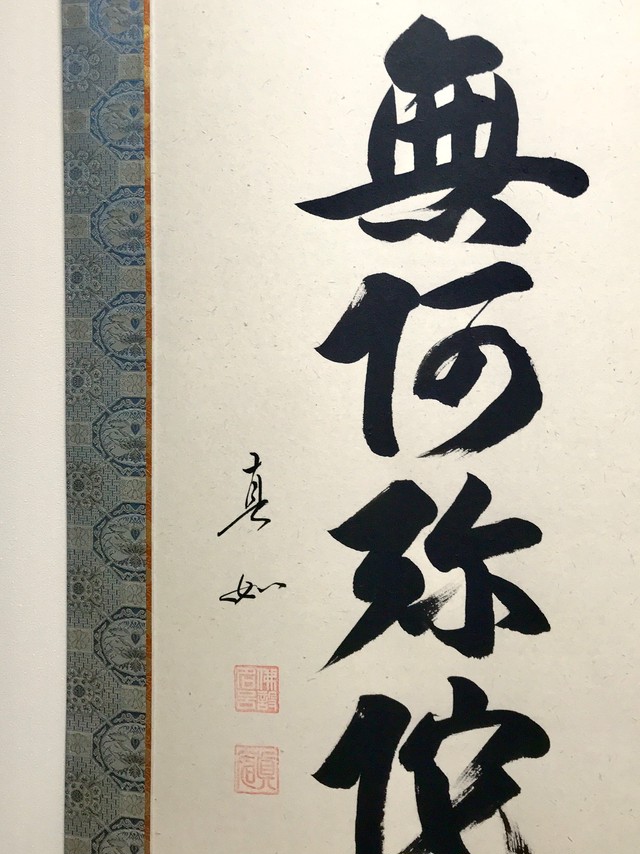 無阿弥陀
真如